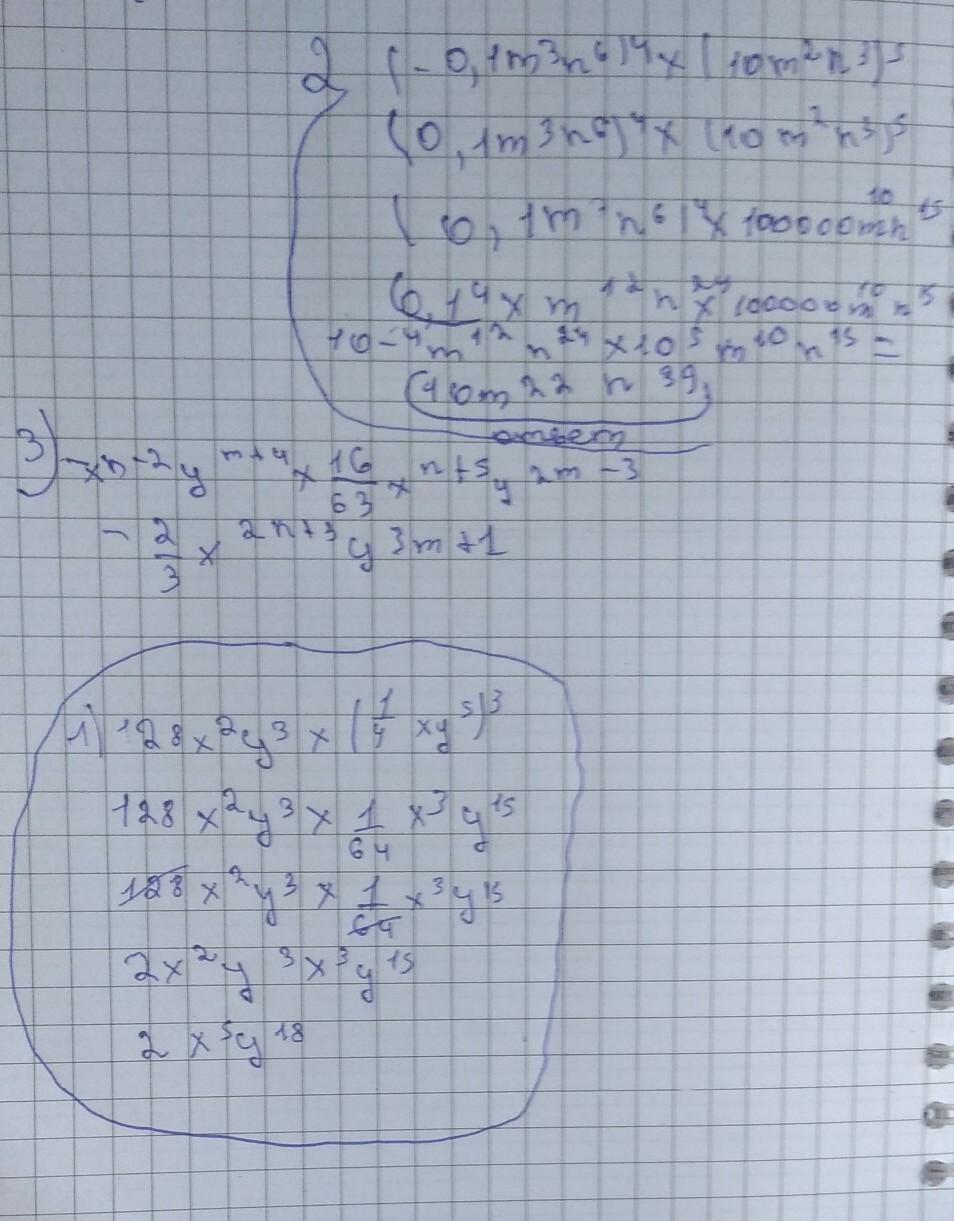 2) (-0,1m³n⁶)⁴ x (10m²n³)⁵
(0,1m³n⁶)⁴ x (10m²n³)⁵
(0,1m³n⁶)⁴ x 100000m¹⁰n¹⁵
0,1⁴ x m¹²n²⁴ x 100000m¹⁰n⁵
10⁻⁴m¹²n²⁴ x 10⁵m¹⁰n¹⁵ =
(10m²²n³⁹)
ответ
3) -xⁿ⁻²yᵐ⁺⁴ x 16/63 xⁿ⁺⁵y²ᵐ⁻³
- 2/3 x²ⁿ⁺³y³ᵐ⁺¹
1) 128x²y³ x (1/4 xy⁵)³
128x²y³ x 1/64 x³y¹⁵
128x²y³ x 1/64 x³y¹⁵
2x²y³x³y¹⁵
2x⁵y¹⁸